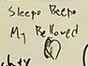 Sleepo Beepo
My Beloved